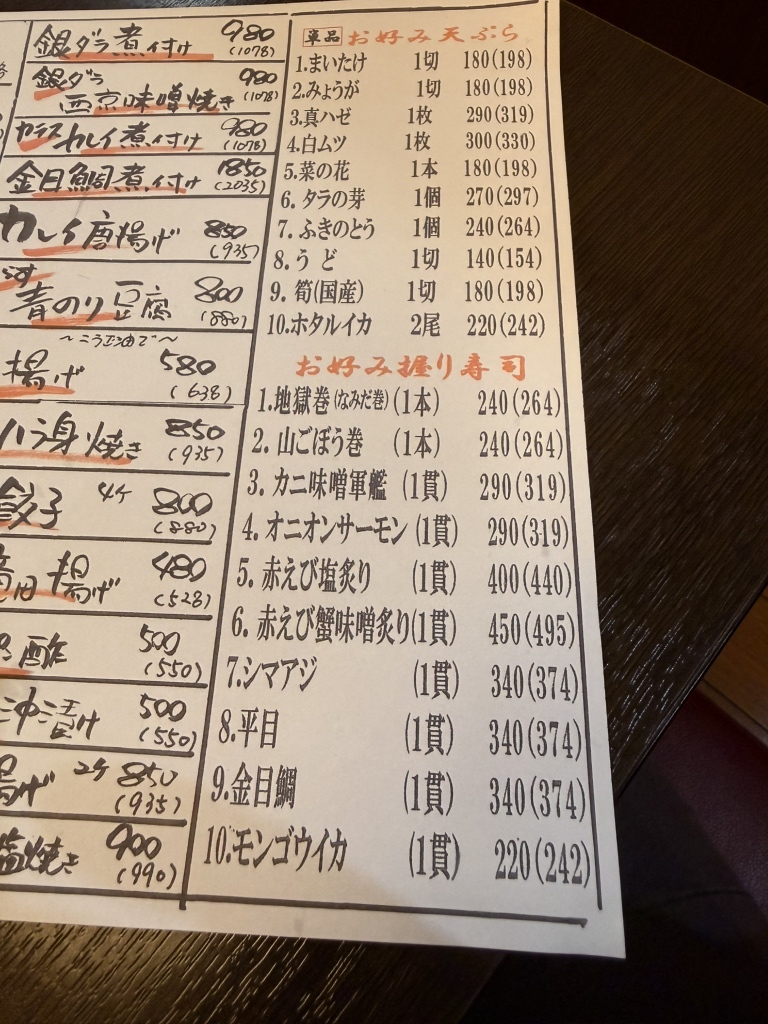 銀ダラ煮付け 980
(1078)
銀ダラ 980
西京味噌焼き (1078)
カラスカレイ煮付け 980
(1078)
金目鯛煮付け 1850
(2035)
カレイ唐揚げ 850
(935)
青のり豆腐 800
(880)
揚げ 580
(638)
ハラ身焼き 850
(935)
餃子 4ケ 800
(880)
竜田揚げ 480
(528)
酢 500
(550)
沖漬け 500
(550)
揚げ 2ケ 850
(935)
塩焼き 900
(990)
単品 お好み天ぷら
1.まいたけ 1切 180(198)
2.みょうが 1切 180(198)
3.真ハゼ 1枚 290(319)
4.白ムツ 1枚 300(330)
5.菜の花 1本 180(198)
6.タラの芽 1個 270(297)
7.ふきのとう 1個 240(264)
8.うど 1切 140(154)
9.筍(国産) 1切 180(198)
10.ホタルイカ 2尾 220(242)
お好み握り寿司
1.地獄巻(なみだ巻)(1本) 240(264)
2.山ごぼう巻 (1本) 240(264)
3.カニ味噌軍艦 (1貫) 290(319)
4.オニオンサーモン(1貫) 290(319)
5.赤えび塩炙り (1貫) 400(440)
6.赤えび蟹味噌炙り(1貫) 450(495)
7.シマアジ (1貫) 340(374)
8.平目 (1貫) 340(374)
9.金目鯛 (1貫) 340(374)
10.モンゴウイカ (1貫) 220(242)